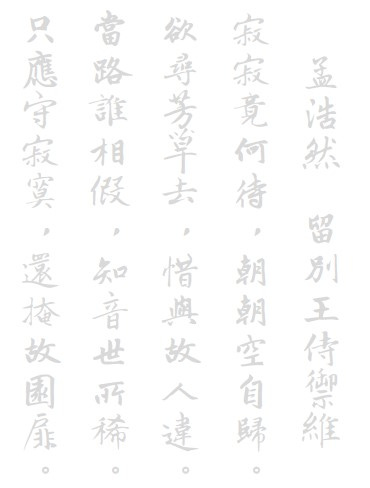 孟浩然　留別王侍禦維
寂寂竟何待，朝朝空自歸。
欲尋芳草去，惜與故人違。
當路誰相假，知音世所稀。
只應守寂寞，還掩故園扉。